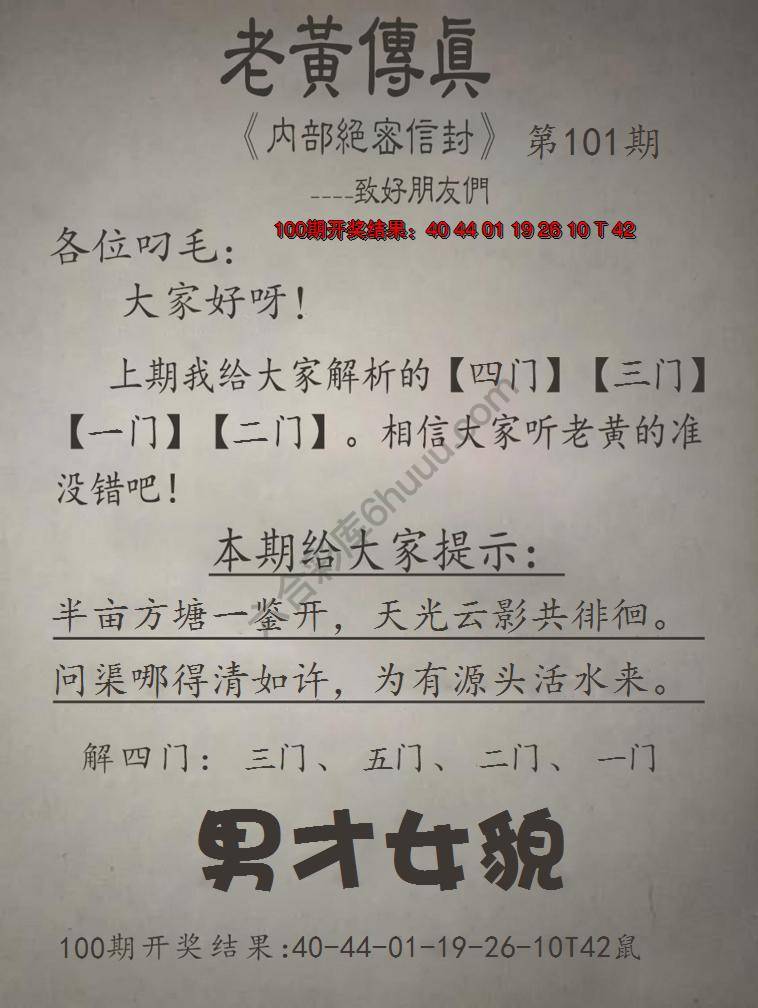 老黃傳眞
《内部絕密信封》 第101期
----致好朋友們
100期开奖结果：40 44 01 19 26 10 T 42
各位叼毛：
大家好呀！
上期我给大家解析的【四门】【三门】
【一门】【二门】。相信大家听老黄的准
没错吧！
六合彩库6huuu.com
本期给大家提示：
半亩方塘一鉴开，天光云影共徘徊。
问渠哪得清如许，为有源头活水来。
解四门：三门、五门、二门、一门
男才女貌
100期开奖结果:40-44-01-19-26-10T42鼠